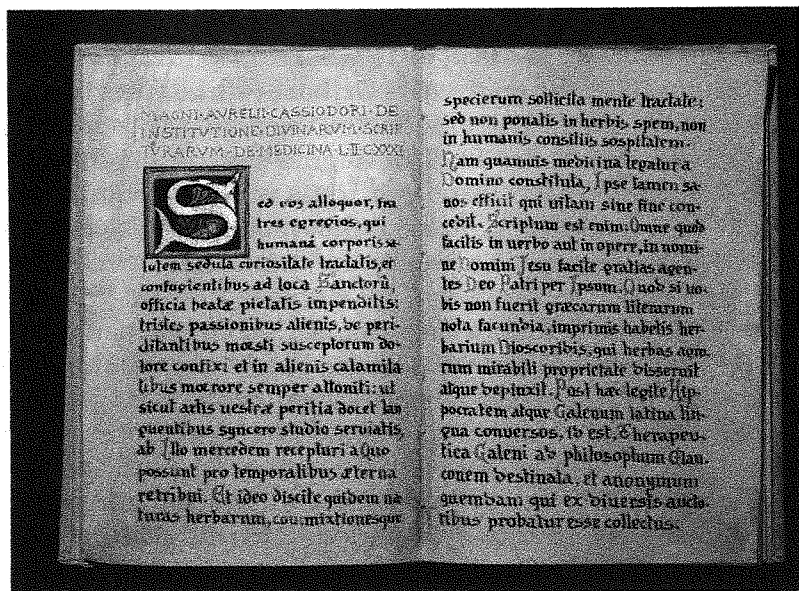 MAGNI·AVRELII·CASSIODORI·DE
INSTITUTIONE·DIVINARVM·SCRIP
TVRARVM·DE·MEDICINA·L·II·C·XXXI
Sed vos alloquor, fra
tres egregios, qui
humanā corporis sa
lutem sedula curiositate tractatis, et
confugientibus ad loca Sanctorū,
officia beatæ pietatis impenditis:
tristes passionibus alienis, de peri-
ditantibus mœsti susceptorum do-
lore confixi et in alienis calamita
tibus mœrore semper attoniti: ut
sicut artis uestræ peritia docet lan
guentibus syncero studio seruiatis,
ab Illo mercedem recepturi a Quo
possunt pro temporalibus æterna
retribui. Et ideo discite quidem na
turas herbarum, commixtionesque
specierum sollicita mente tractate:
sed non ponatis in herbis spem, non
in humanis consiliis sospitatem.
Nam quamuis medicina legatur a
Domino constituta, Ipse tamen sa-
nos efficit qui uitam sine fine con-
cedit. Scriptum est enim: Omne quod
facitis in uerbo aut in opere, in nomi-
ne Domini Jesu facite gratias agen-
tes Deo Patri per Ipsum. Quod si uo-
bis non fuerit græcarum literarum
nota facundia, imprimis habetis her-
barium Dioscoridis, qui herbas agro-
rum mirabili proprietate disseruit
atque depinxit. Post hæc legite Hip-
pocratem atque Galenum latina lin-
gua conuersos, id est, Therapeu-
tica Galeni ad philosophum Glau-
conem destinata, et anonymum
quemdam qui ex diuersis aucto-
ribus probatur esse collectus.